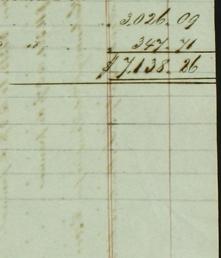 3,026. 09
" 347. 71
$ 7,138. 26